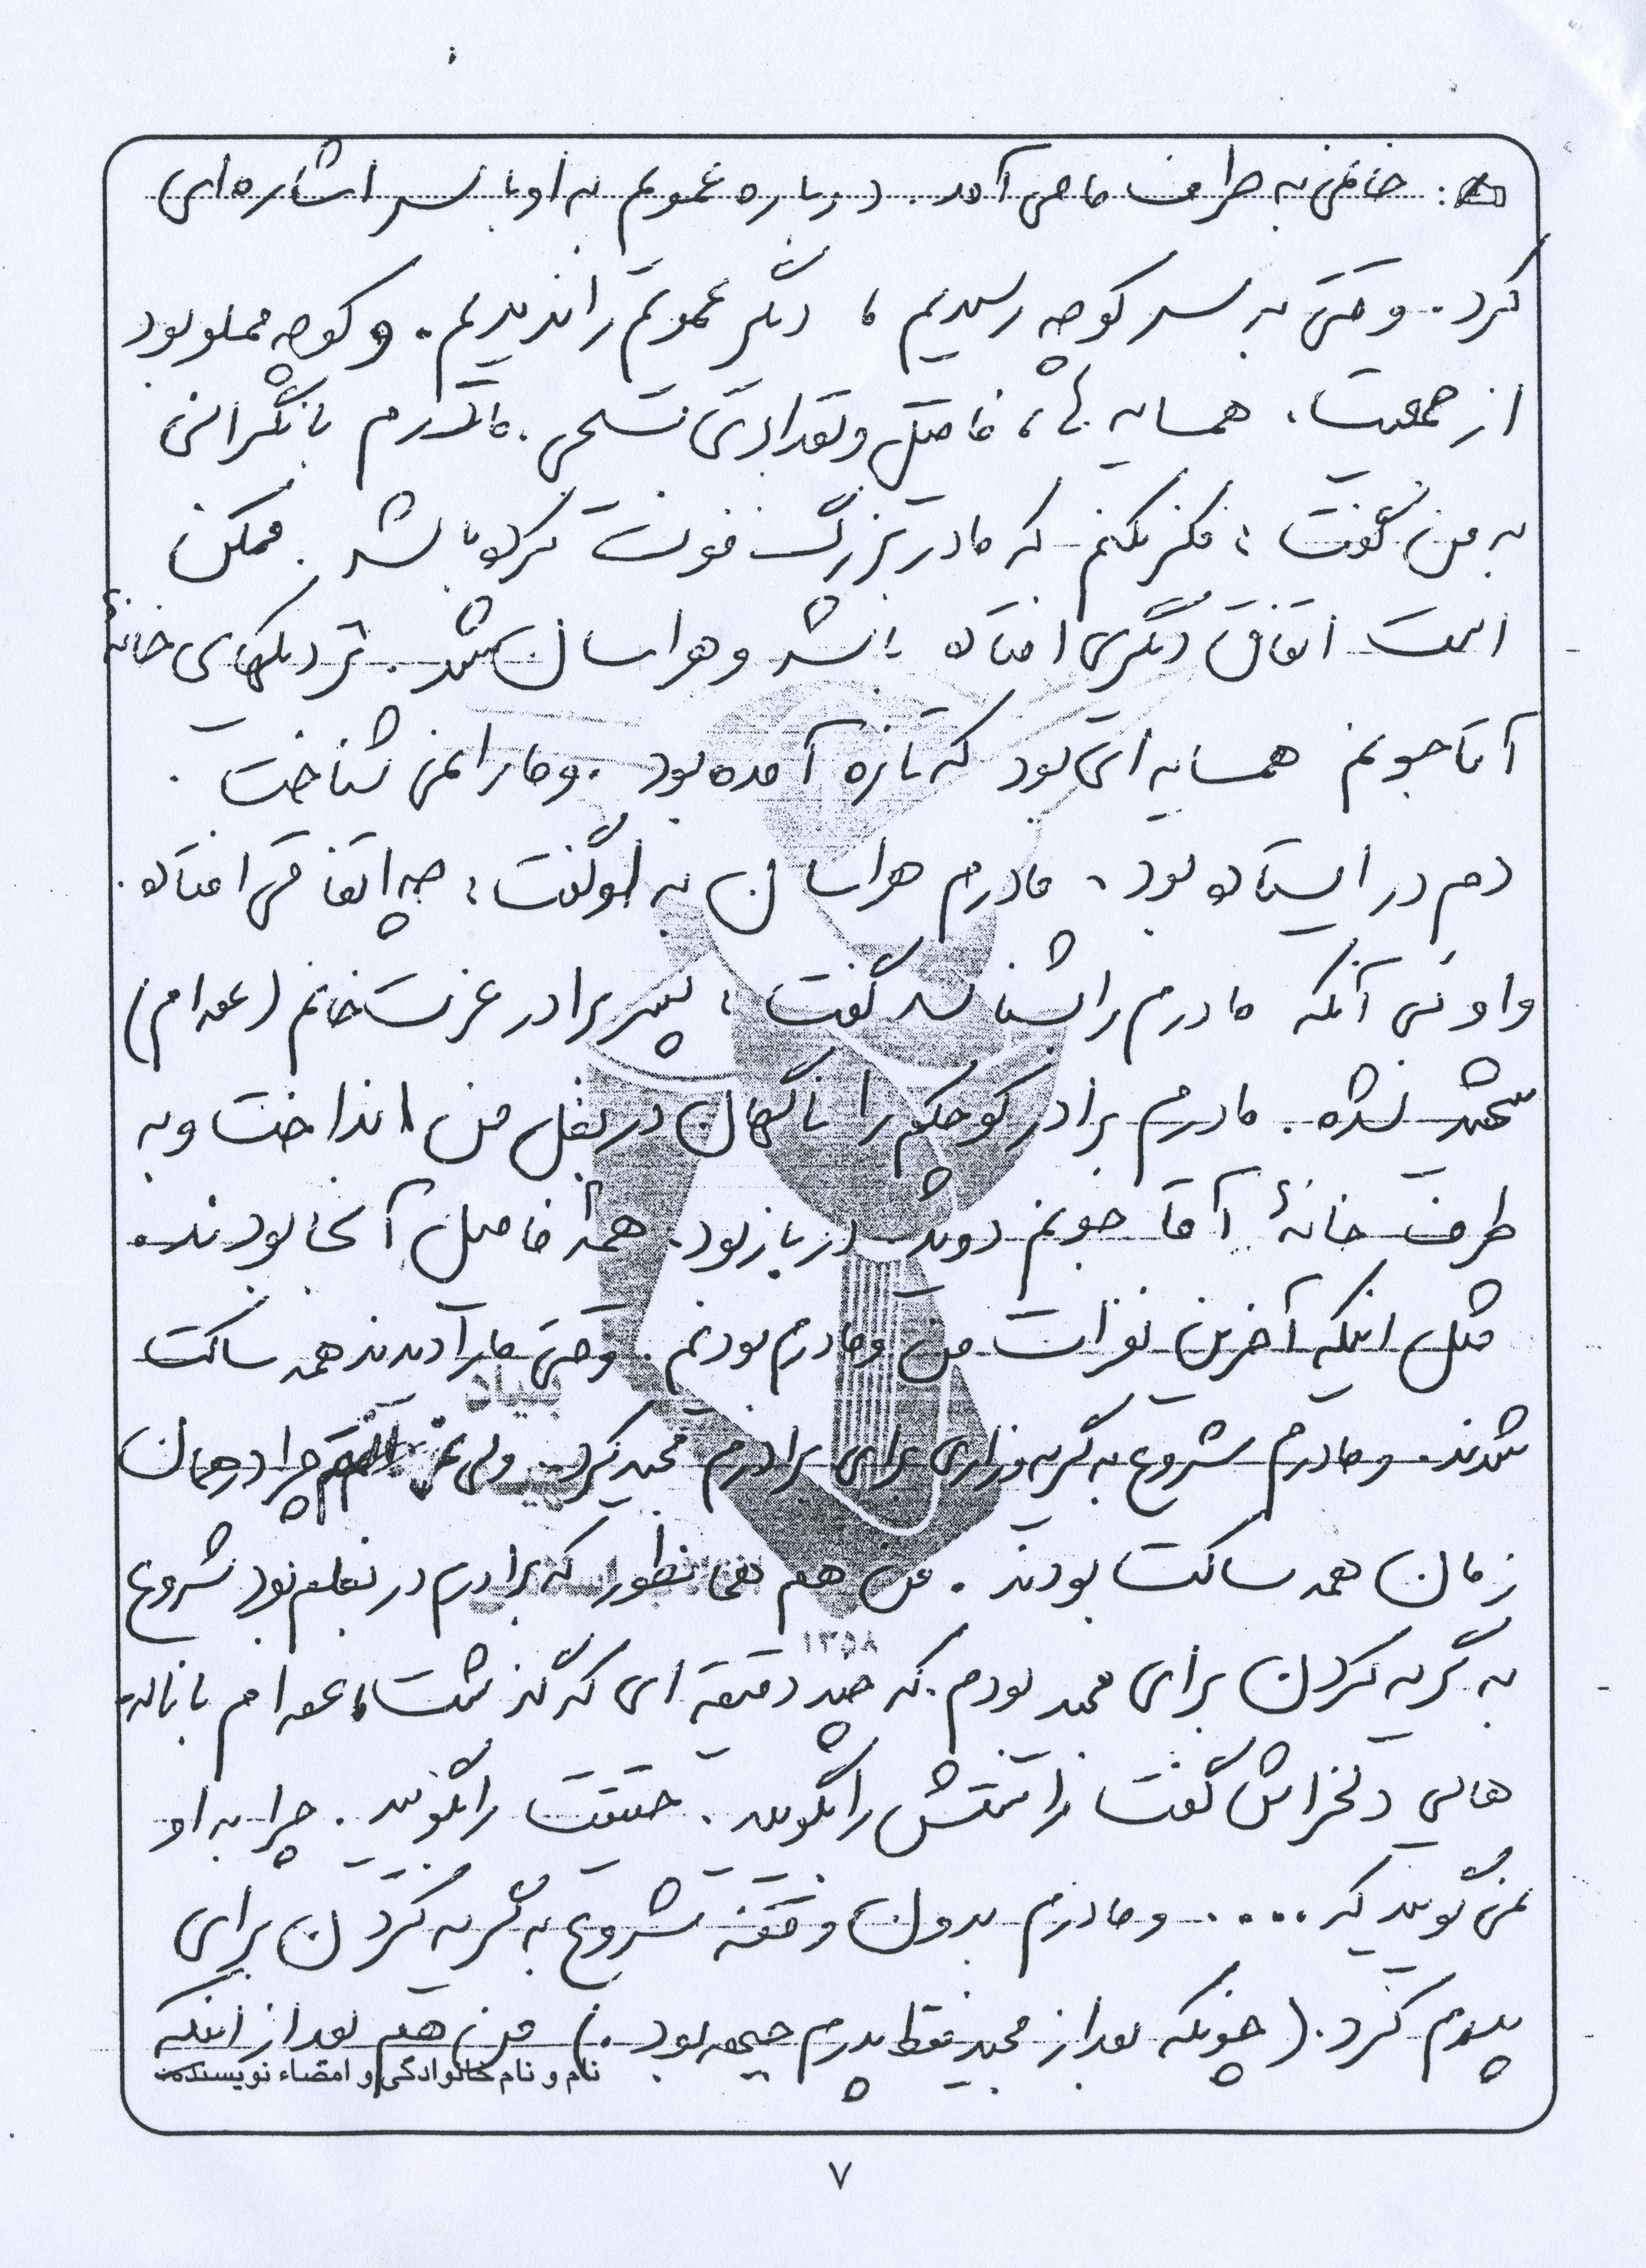 خانمی به طرف ما می آمد. دوباره عمویم به او با سر اشاره ای
کرد. وقتی به سر کوچه رسیدیم، دیگر عمویم را ندیدیم. و کوچه مملو بود
از جمعیت. همسایه ها، فامیل و تعدادی ناشناس. مادرم با نگرانی
به من گفت: فکر نکنم که مادربزرگ فوت کرده باشد. ممکن
است اتفاق دیگری افتاده باشد و هراسان شد. نزدیکهای خانۀ
آقاجونم همسایه ای بود که تازه آمده بود. و ما را نمی شناخت.
دم در ایستاده بود. مادرم هراسان به او گفت: چه اتفاقی افتاده.
و او بی آنکه مادرم را بشناسد گفت: پسر برادر عزت خانم (عمه ام)
شهید شده. مادرم برادر کوچکم را ناگهان در بغل من انداخت و به
طرف خانۀ آقا جونم دوید. در باز بود. همۀ فامیل آنجا بودند.
مثل اینکه آخرین نفرات من و مادرم بودیم. وقتی ما را دیدند همه ساکت
شدند. و مادرم شروع به گریه و زاری برای برادرم مجید کرد. ولی چرا در همان
زمان همه ساکت بودند. من هم همانطور که برادرم در بغلم بود شروع
به گریه کردن برای مجید بودم. که چند دقیقه ای که گذشت، عمه ام با ناله
هایی دلخراش گفت راستش را بگویید. حقیقت را بگویید. چرا به او
نمی گویید که .... و مادرم بدون وقفه شروع به گریه کردن برای
پدرم کرد. (چونکه بعد از مجید فقط پدرم جبهه بود.) من هم بعد از اینکه
نام و نام خانوادگی و امضاء نویسنده:
بنیاد
۱۳۵۸
۷